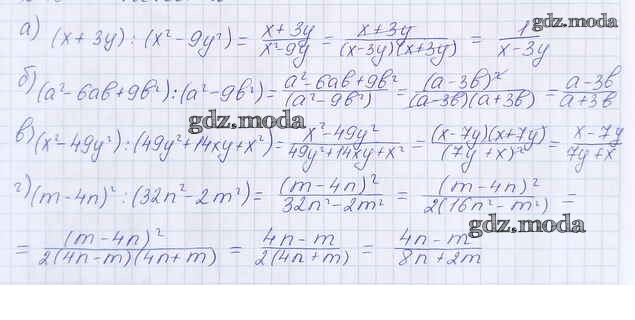 gdz.moda
а) (x+3y) : (x²-9y²) = x+3y / x²-9y = x+3y / (x-3y)(x+3y) = 1 / x-3y
б) (a²-6ab+9b²):(a²-9b²) = a²-6ab+9b² / (a²-9b²) = (a-3b)² / (a-3b)(a+3b) = a-3b / a+3b
gdz.moda
в) (x²-49y²) : (49y²+14xy+x²) = x²-49y² / 49y²+14xy+x² = (x-7y)(x+7y) / (7y+x)² = x-7y / 7y+x
г) (m-4n)² : (32n²-2m²) = (m-4n)² / 32n²-2m² = (m-4n)² / 2(16n²-m²) =
gdz.moda
= (m-4n)² / 2(4n-m)(4n+m) = 4n-m / 2(4n+m) = 4n-m / 8n+2m